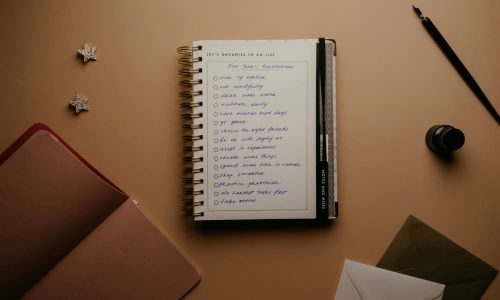 LET'S ORGANISE-TO DO LIST
New Year's Resolutions
wake up earlier
eat mindfully
drink more water
meditate daily
have meatless most days
go green
choose the right friends
be ok with saying no
invest in experiences
create more things
spend more time in nature
shop
practice gratitude
do hardest tasks first
take notes